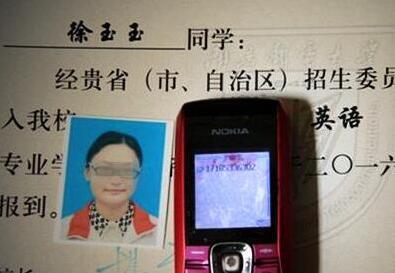 徐玉玉 同学：
经贵省（市、自治区）招生委员
入我校 英语
专业学 二〇一六
报到。
NOKIA